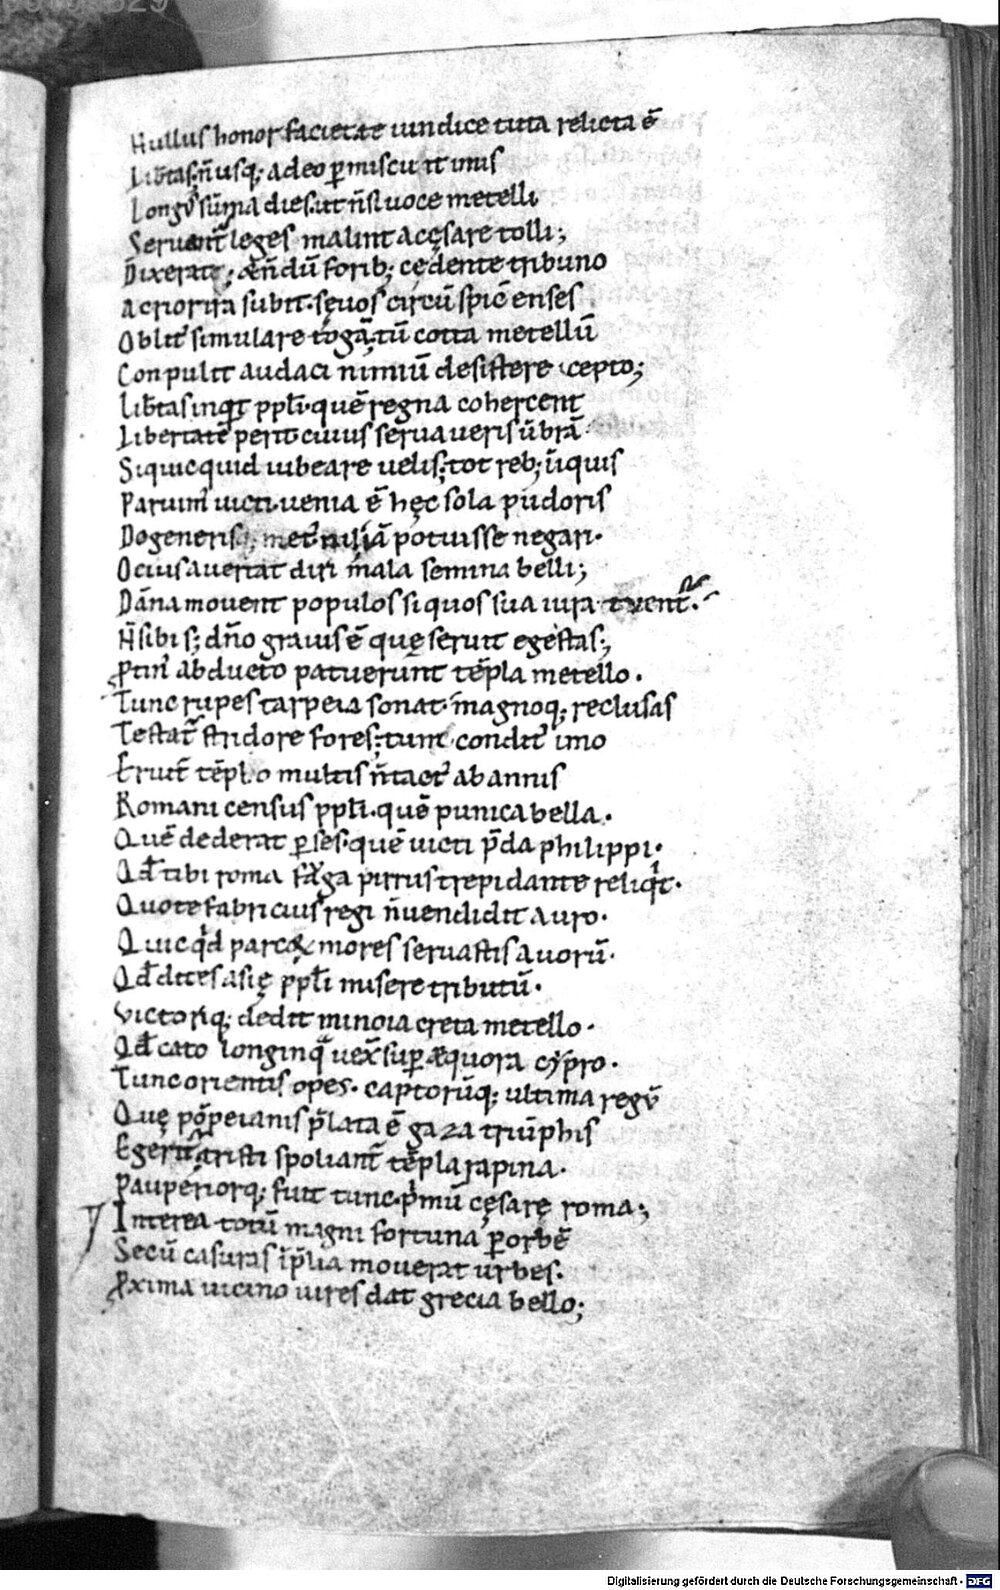 Nullus honor faciet te iundice tuta relicta ē
Lib̄tas; n̄ usq; adeo ꝑmiscuit imis
Longꝰ sūma dies. ut n̄ si uoce metelli
Seruent̄ leges malint a cęsare tolli;
D̄ixerat; & n̄dū forib; cędente tribuno
Acrior ira subit. sęuos circū spicˉ enses
Oblitˀ simulare togā; tū cotta metellū
Conpulit audaci nimiū desistere cepto;
Lib̄tas inqͥt ppl̄i. quē regna cohercent
Libertate perit cuius seruaueris ūbrā.
Siquicquid iubeare uelis; tot reb; iniquis
Paruimˀ uicti. uenia ē hęc sola pudoris
Degeneris; metˀ nulla iā potuisse negari.
Ocius auertat diri mala semina belli;
Dāna mouent populos siquos sua iura tuent̄.
N̄ sibi s; dn̄o grauis ē quę seruit egestas;
ꝓtinˀ abducto patuerunt tēpla metello.
Tunc rupes tarpeia sonat. magnoq; reclusas
Testat̄ stridore fores; tunc conditˀ imo
Eruit̄ tēplo multis n̄ tactˀ ab annis
Romani census ppl̄i. quē punica bella.
Quē dederat ꝑses. quē uicti p̄da philippi.
Qd̄ tibi roma fuga pirrus trepidante reliqͥt.
Quo te fabricius regi n̄ uendidit auro.
Quicqͥd parcoꝝ mores seruastis auorū.
Qd̄ dites asię ppl̄i misere tributū.
Victoriq; dedit minoia creta metello.
Qd̄ cato longinqͣ uex̄ suꝑ æquora cypro.
Tunc orientis opes. captorūq; ultima regū
Quę pōpeianis p̄lata ē gaza triūphis
Egerit̄ tristi spoliant̄ tēpla rapina.
Pauperiorq; fuit tunc. pͥmū cęsare roma;
Interea totū magni fortuna ꝑ orbē
Secū casuras ī p̄lia mouerat urbes.
ꝓxima uicino uires dat grecia bello;
Digitalisierung gefördert durch die Deutsche Forschungsgemeinschaft - DFG